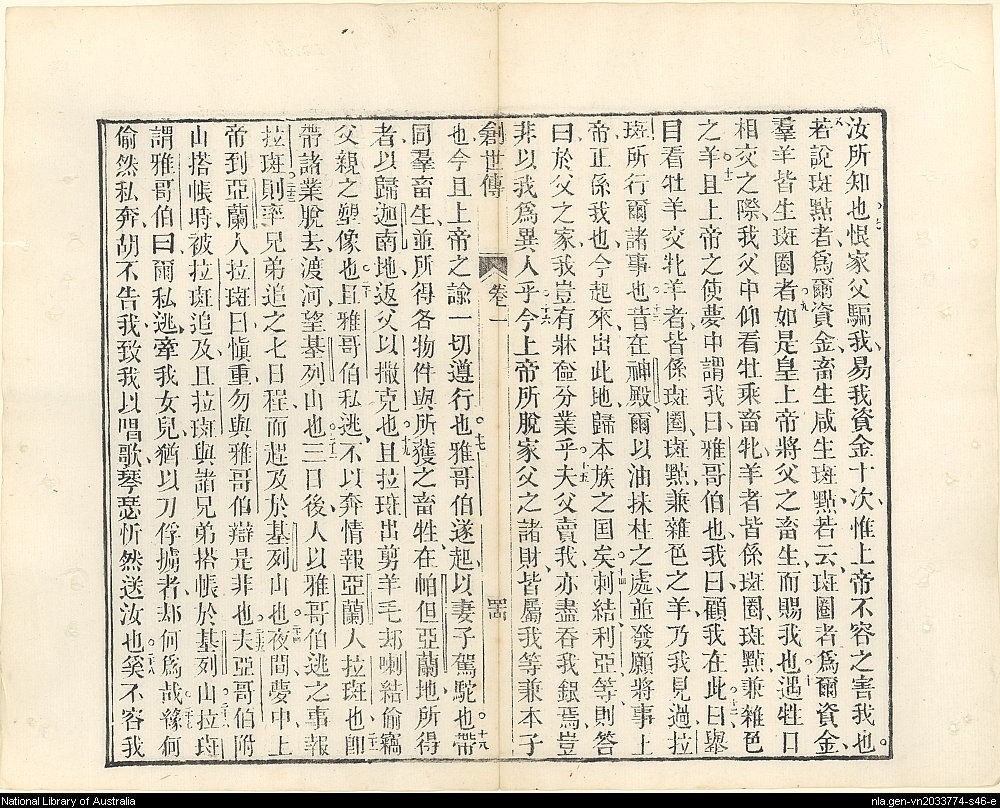 汝所知也恨家父騙我易我資金十次惟上帝不容之害我也。
八若說斑點者爲爾資金畜生咸生斑點若云斑圈者爲爾資金
羣羊皆生斑圈者如是皇上帝將父之畜生而賜我也遇牡口
相交之際我父中仰看牡乘畜牝羊者皆係斑圈斑點兼雜色
之羊。十一且上帝之使夢中謂我曰雅哥伯也我曰顧我在此曰舉
目看牡羊交牝羊者皆係斑圈斑點兼雜色之羊乃我見過拉
斑所行爾諸事也。昔在神殿爾以油抹柱之處並發願將事上
帝正係我也今起來出此地歸本族之国矣。十四剌結利亞等則答
曰於父之家我豈有牀奩分業乎。十五夫父賣我亦盡吞我銀焉豈
非以我爲異人乎。十六今上帝所脫家父之諸財皆屬我等兼本子
創世傳 卷一
也今且上帝之諭一切遵行也。十七雅哥伯遂起以妻子駕駝也。十八帶
同羣畜生並所得各物件與所獲之畜牲在帕但亞蘭地所得
者以歸迦南地返父以撒克也。十九且拉班出剪羊毛郄喇結偷竊
父親之塑像也。二十且雅哥伯私逃不以奔情報亞蘭人拉斑也。卽
帶諸業脫去渡河望基列山也。三日後人以雅哥伯逃之事報
拉斑。二十三則率兄弟追之七日程而趕及於基列山也。二十四夜間夢中上
帝到亞蘭人拉斑曰愼重勿與雅哥伯辯是非也。二十五夫亞哥伯附
山搭帳時被拉斑追及且拉斑與諸兄弟搭帳於基列山。拉斑
謂雅哥伯曰爾私逃牽我女兒猶以刀俘擄者郄何爲哉。緣何
偷然私奔胡不告我致我以唱歌琴瑟忻然送汝也。二十八奚不容我
National Library of Australia
nla.gen-vn2033774-s46-e